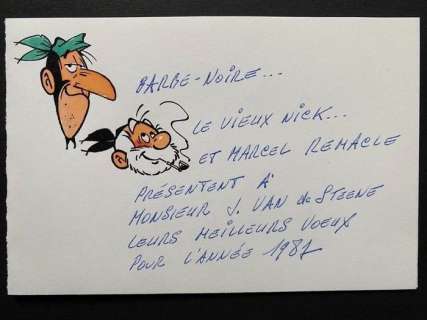 BARBE-NOIRE...
LE VIEUX NICK...
ET MARCEL REMACLE
PRÉSENTENT À
MONSIEUR J. VAN de STEENE
LEURS MEILLEURS VOEUX
POUR L'ANNÉE 1987